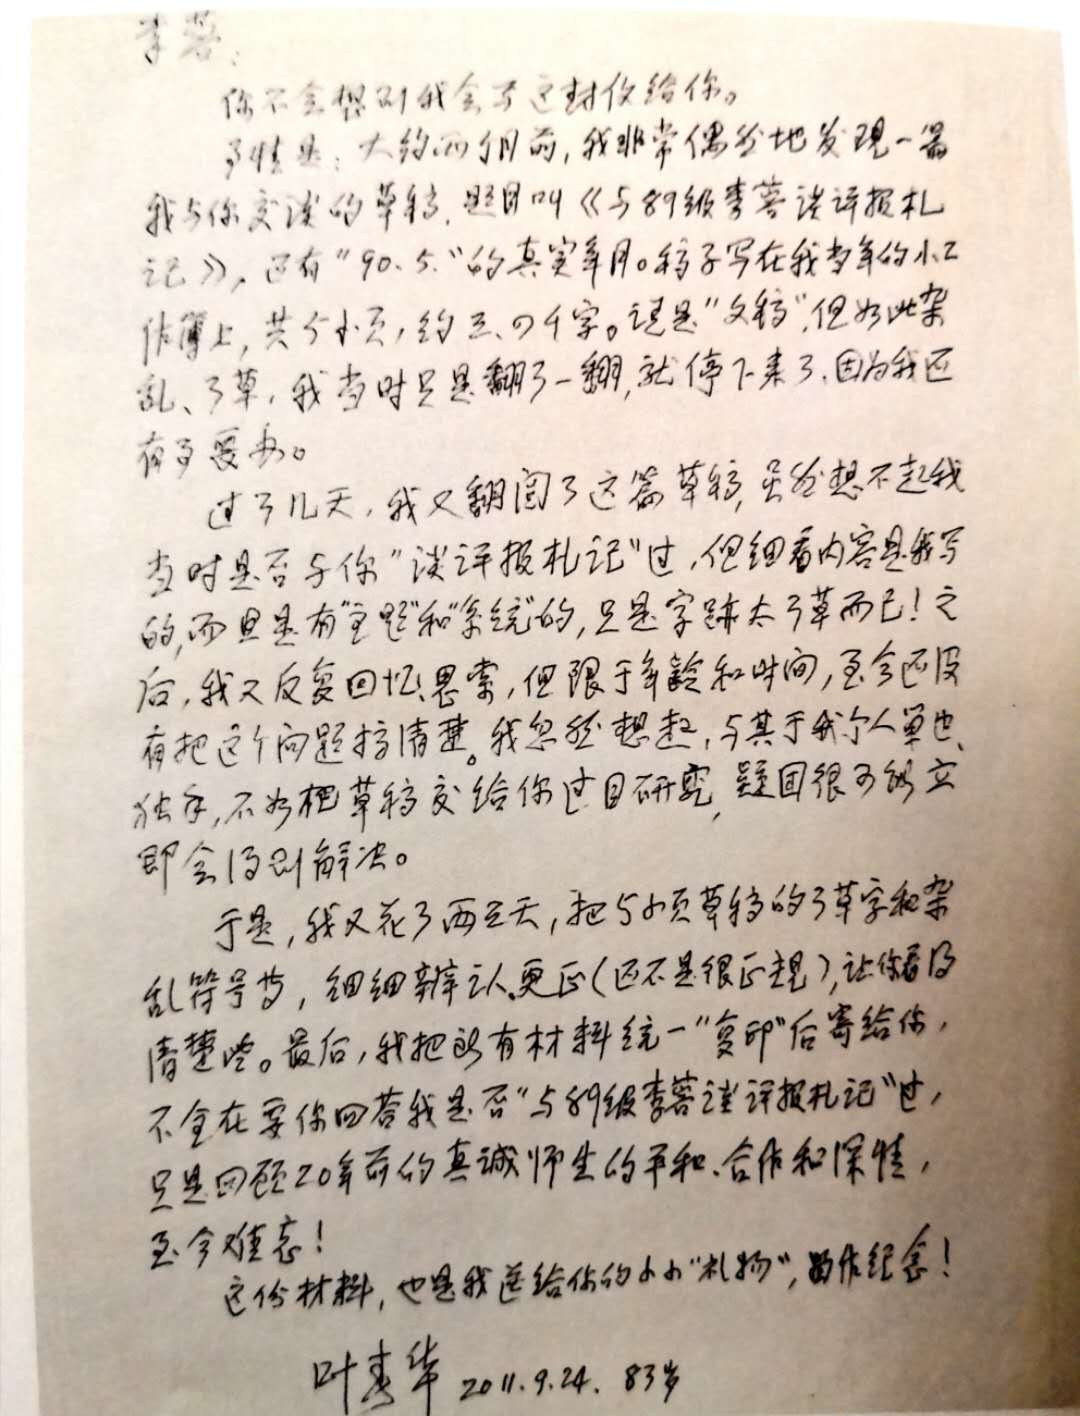 李蓉：
你不会想到我会写这封信给你。
事情是：大约两个月前，我非常偶然地发现一篇
我与你交谈的草稿，题目叫《与89级李蓉谈评报札
记》，还有“90.5.”的真实年月。稿子写在我当年的小工
作簿上，共5小页，约三、四千字。说是“文稿”，但如此杂
乱、了草，我当时只是翻了一翻，就停下来了，因为我还
有事要办。
过了几天，我又翻阅了这篇草稿，虽然想不起我
当时是否与你“谈评报札记”过，但细看内容是我写
的，而且是有“主题”和“系统”的，只是字跡太了草而已！之
后，我又反复回忆、思索，但限于年龄和时间，至今还没
有把这个问题搞清楚。我忽然想起，与其于我个人单也、
独手，不如把草稿交给你过目研究，疑团很可能立
即会得到解决。
于是，我又花了两三天，把5小页草稿的了草字和杂
乱符号等，细细辨认、更正（还不是很正规），让你看得
清楚些。最后，我把所有材料统一“复印”后寄给你，
不全在要你回答我是否“与89级李蓉谈评报札记”过，
只是回顾20年前的真诚师生的平和、合作和深情，
至今难忘！
这份材料，也是我送给你的小小“礼物”，留作纪念！
叶春华 2011.9.24. 83岁